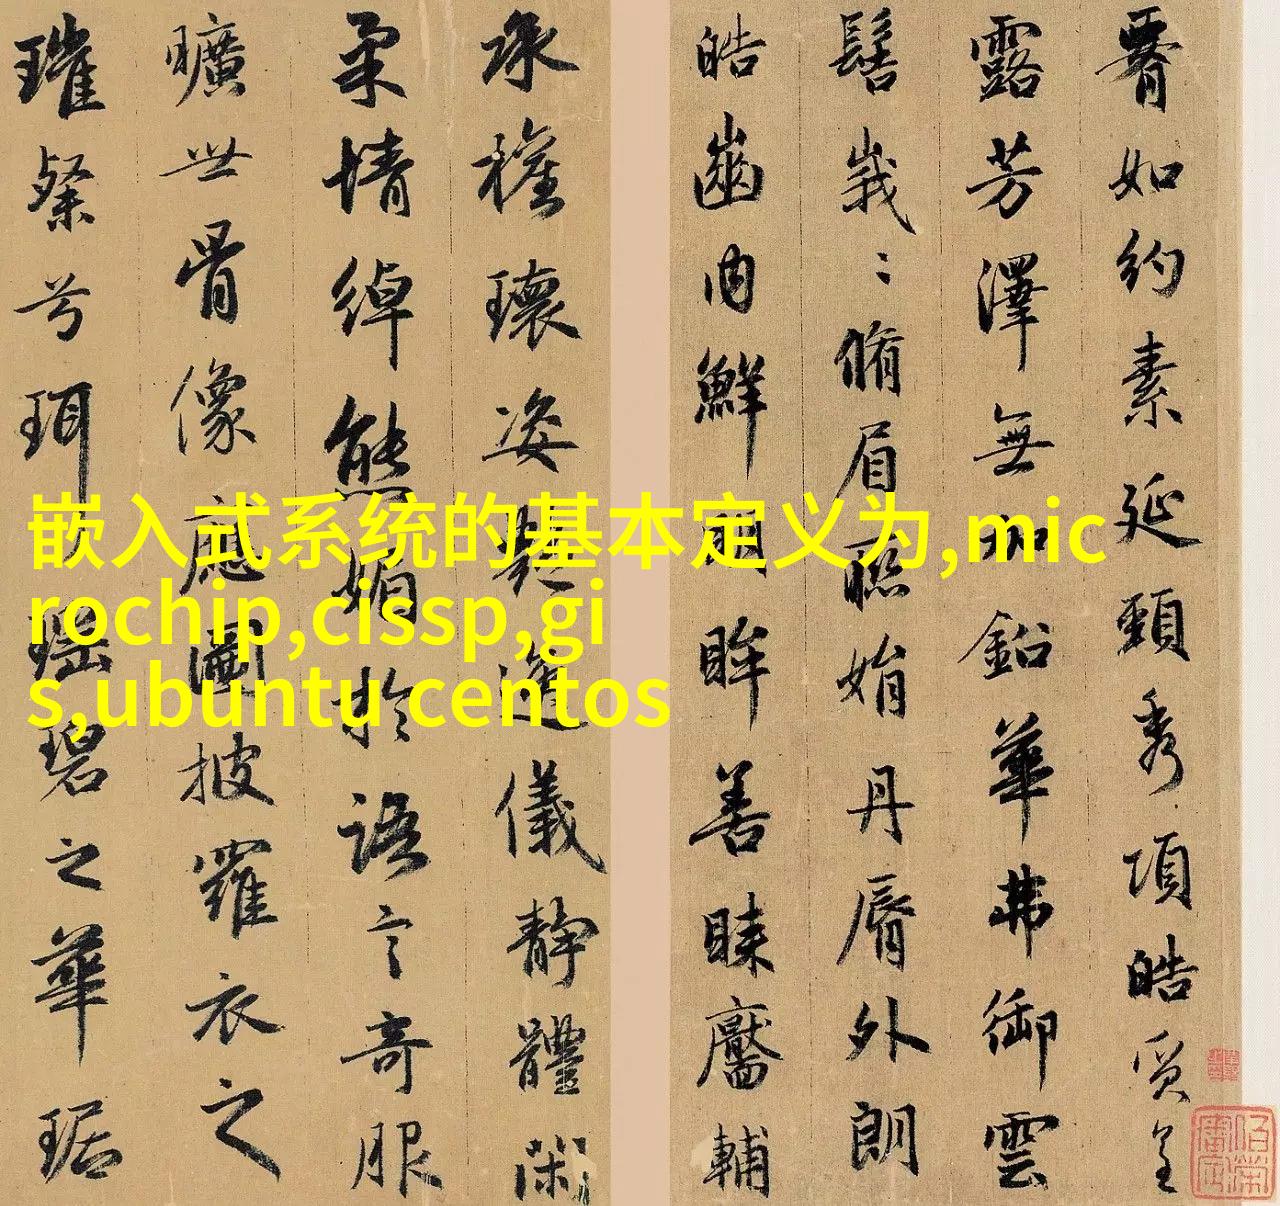 嵌入式系统的基本定义为,mic
rochip,cissp,gi
s,ubuntu centos
腰如約素延頸秀項皓質呈
露芳澤無加鉛華弗御雲
髻峩〻脩眉聯娟丹脣外朗
皓齒内鮮明眸善睞靨輔
承權瓌姿艷逸儀靜體閑
柔情綽態媚於語言奇服
曠世骨像應圖披羅衣之
璀粲兮珥瑤碧之華琚